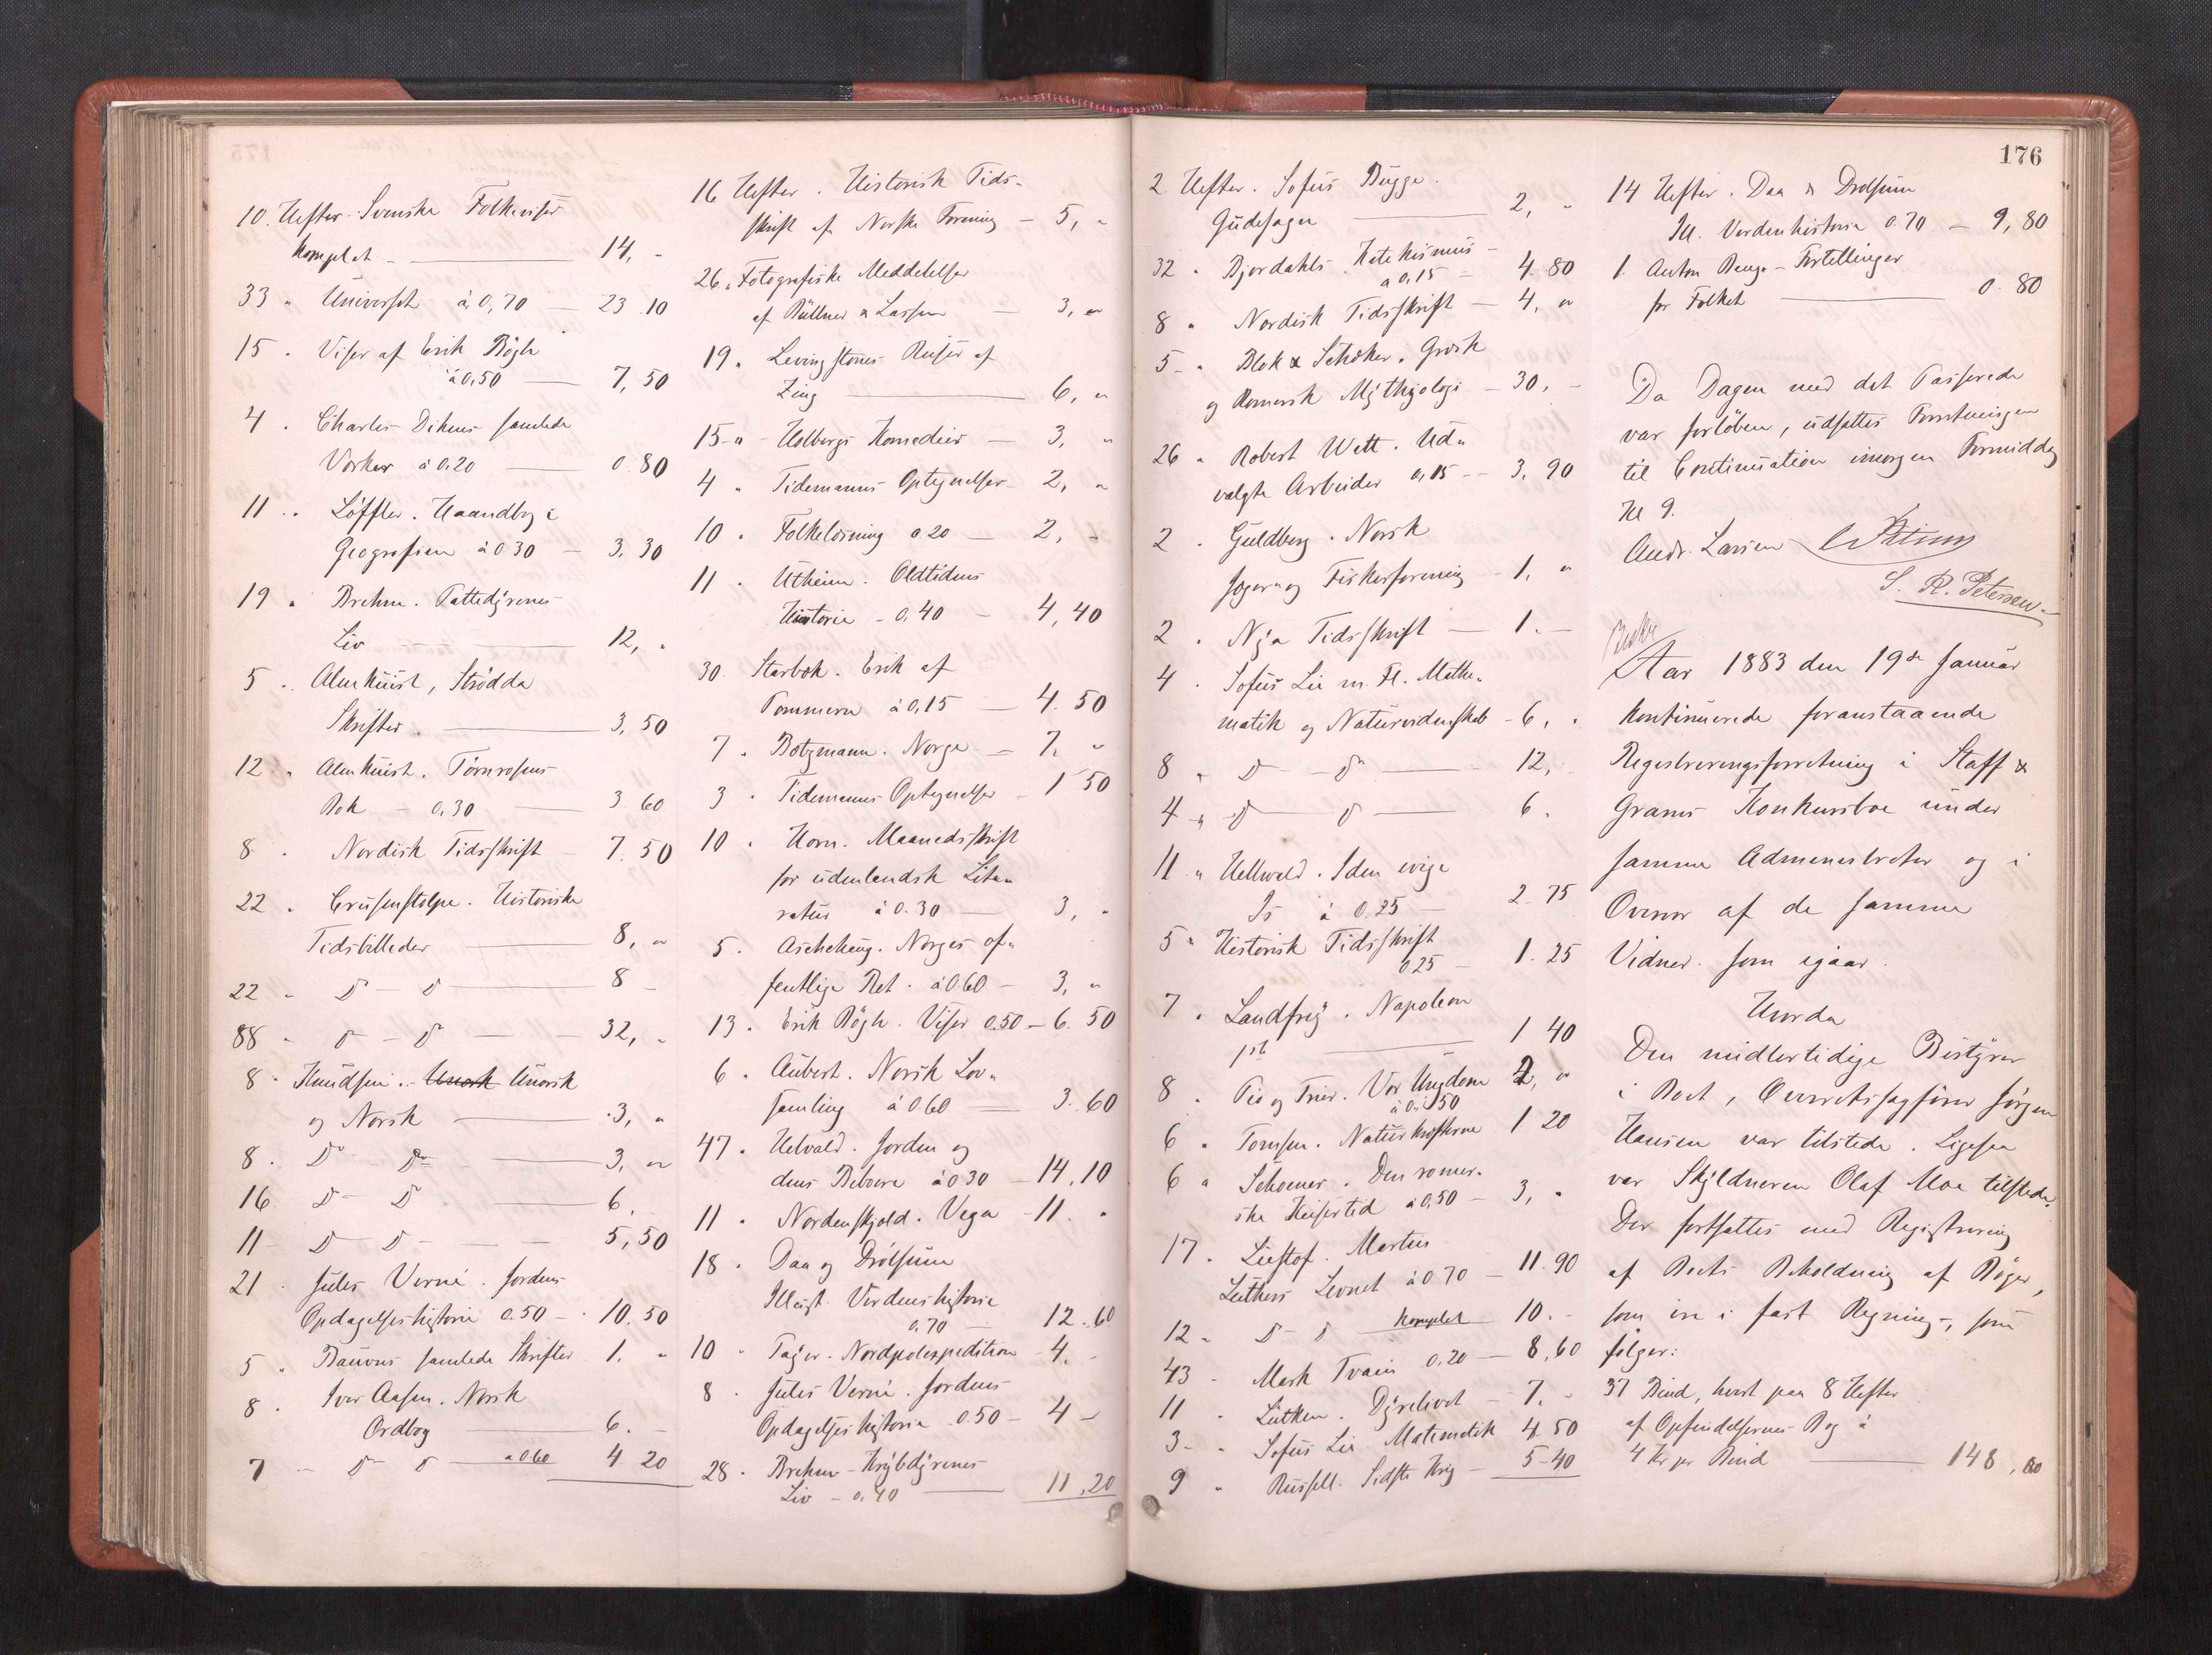 10. Hefter. Svenske Folkeviser
komplet - — 14, -
33 " Universet à 0,70 — 23.10
15 . Viser af Erik Bøgh
à 0,50 — 7,50
4 . Charles Dikens samlede
Værker à 0.20 — 0.80
11 . Löffler. Haandbog i
Geografien à 0 30 — 3.30
19 " Brehm. Pattedyrenes
Liv — 12, "
5 .. Almkuist, Strödda
Skrifter. — 3,50
12 " Almkuist. Törnrosens
Bok - 0,30 — 3 60
8 . Nordisk Tidsskrift — 7.50
22 . Crusenstolpe. Historiske
Tidsbilleder — 8, "
22 " D - D — 8 -
88 " D - D — 32, "
8 " Knudsen. Unorsk Unorsk
og Norsk — 3, "
8 . Do Do — 3, "
16 D - D — 6,
11 - D D - — 5,50
21 . Jules Verne. Jordens
Opdagelseshistorie 0.50 - 10.50
5 " samlede Skrifter 1. "
8 . Iver Aasen. Norsk
Ordbog — 6. -
7 - D D — à 0 60 4 20
16 Hefter. Historisk Tids-
skrift af Norske Forening — 5, "
26 " Fotografiske Meddelelser
af Büllner & Lassen — 3, "
19 " Levingstones Reiser af
Zing — 6, "
15 - " - Holbergs Komedier — 3, "
4 " Tidemanns Optegnelser - 2, "
10 . Folkelæsning 0.20 — 2, -
11 . Utheim. Oldtidens
Historie - 0,40 — 4,40
30. Starbæk. Erik af
Pommern à 0,15 — 4.50
7 " Botzmann. Norge — 7. "
3 . Tidemanns Optegnelser - 1 50
10 . Horn. Maanedsskrift
for udenlandsk Lite-
ratur à 0.30 — 3, "
5 . Aschehoug. Norges of-
fentlige Ret. à 0.60 - 3, "
13 . Erik Bøgh. Viser 0.50 - 6.50
6 . Aubert. Norsk Lov-
samling à 0 60 — 3.60
47 . Helvald. Jorden og
dens Beboere à 0 30 - 14,10
11 . Nordenskjold. Vega - 11. "
18 . Daa og Drolsum
Illustr. Verdenshistorie
0,70 — 12.60
10 " - Nordpolexpedition - 4. -
8 . Jules Verne. Jordens
Opdagelseshistorie 0.50 - 4 -
28 . Brehm - Krybdyrenes
Liv - 0,40 — 11,20
176
2 Hefter. Sofus Bugge.
Gudesagn — 2, -
32 " Bjordahls Katekismus -
à 0,15 - 4.80
8 " Nordisk Tidsskrift — 4, "
5 - " Blok & Schoker. Græsk
og Romersk Mythyologi - 30, -
26 " Robert Watt. Ud-
valgte Arbeider 0,15 - - 3.90
2 . Guldberg. Norsk
Jæger- og Fiskerforening - 1, "
2 . Nya Tidsskrift — 1. -
4 . Sofus Lie m. Fl. Mathe-
matik og Naturvidenskab - 6, "
8 " D - D — 12,
4 " D D — 6.
11 " Hellwald. I den evige
Is à 0.25 — 2.75
5 " Historisk Tidsskrift
0.25 - 1.25
7 . Landfrey. Napoleon
1ste — 1 40
8 . Pio og Trier. Vor Ungdom 4, "
à 0.50
6 " Tomsen. Naturkræfterne 1 20
6 " Schoener. Den romer-
ske Keisertid à 0,50 - 3, "
17 . Liestof. Martin
Luthers Levnet à 0 70 - 11.90
12 - D - D komplet 10. -
43 - Mark Tvain 0.20 — 8,60
11 . Lütken. Dyrelivet - 7. -
3 - " Sofus Lie Matematik 4.50
9 " Russell. Sidste Krig - 5-40
14 Hefter. Daa & Drolsum
Ill. Verdenhistorie 0.70 - 9,80
1. Anton Bang - Fortellinger
for Folket — 0.80
Da Dagen med det Passerede
var forløben, udsattes Forretningen
til Continuation imorgen Formiddag
Kl 9.
Andr. Larsen
S. R. Petersen.
Aar 1883 den 19de Januar
kontinuerede foranstaaende
Registreringsforretning i Staff &
Grams Konkursboe under
samme Administrator og i
Overvær af de samme
Vidner som igaar.
Hvorda
Den midlertidige Bestyrer
i Boet, Overretssagfører Jørgen
Hansen var tilstede. Ligesaa
var Skyldneren Olaf Moe tilstede.
Der fortsattes med Registrering
af Boets Beholdning af Bøger,
som ere i fast Regning, som
følger:
37 Bind, hvert paa 8 Hefter
af Opfindelsernes Bog à
4 Kr pr Bind — 148,00